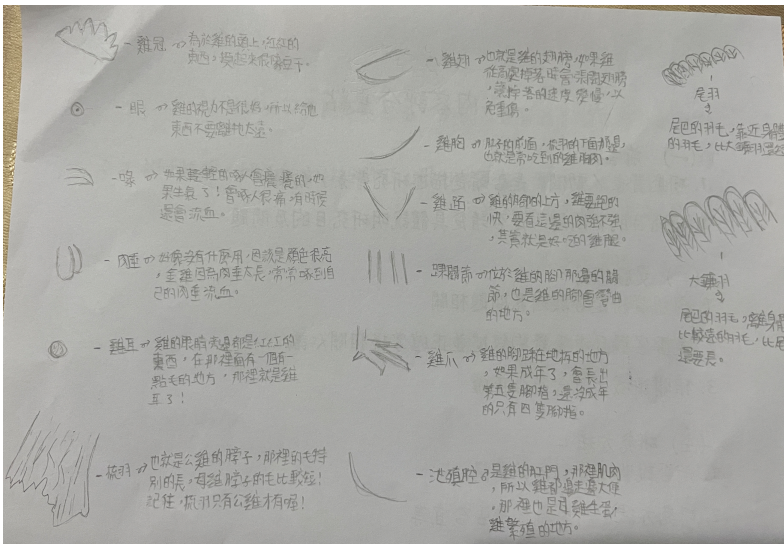 雞冠→為於雞的頭上,紅紅的
東西,摸起來很像豆干。
眼→雞的視力不是很好,所以給他
東西不要離牠太遠。
喙→如果輕輕的啄會癢癢的,如
果生氣了!會啄人很痛,有時候
還會流血。
肉垂→好像沒有什麼用,但就是顏色很亮,
奎雞因為肉垂太長,常常啄到自
己的肉垂流血。
雞耳→雞的果前夫邊都是紅紅的
東西,在那裡面有一個有一
點毛的地方,那裡就是雞
耳了!
梳羽→也就是公雞的脖子,那裡的毛特
別的長,母雞脖子的毛比較短!
記住,梳羽只有公雞才有喔!
雞翅→也就是雞的翅膀,如果雞
從高處掉落時會張開翅膀
,讓掉落的速度變慢,以
免受傷。
雞胸→肚子的前面,梳羽的下面都是,
也就是常吃到的雞胸肉。
雞
雞的腳的上方,雞要跑的
快,要看這邊的肉強不強
,其實就是好吃的雞腿。
踝關節→位於雞的腳那邊的關
節,也是雞的腳會彎曲
的地方。
雞爪→雞的腳踩在地板的地方
,如果成年了,會長出
第五隻腳指,還沒成年
的只有四隻腳指。
泄殖腔→是雞的肛門,那裡肌肉
,所以雞都邊走邊大便
,那裡也是母雞生蛋,
雞繁殖的地方。
尾羽
尾巴的羽毛,靠近身體
的羽毛,比大鐮羽
大鐮羽
尾巴的羽毛,離身
比較遠的羽毛,比尾
還要長。